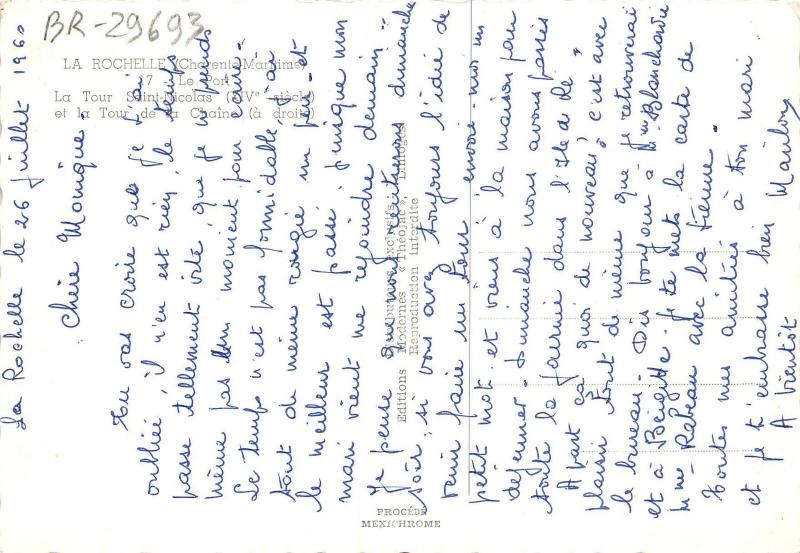 BR-29693
LA ROCHELLE (Charente-Maritime)
17 - Le Port
La Tour Saint-Nicolas (XIVe siècle)
et la Tour de la Chaîne (à droite)
Editions Modernes « Théojac », Limoges
Reproduction interdite
PROCÉDÉ
MEXICHROME
La Rochelle le 26 juillet 1960
Chère Monique,
Tu vas croire que je t'ai
oubliée, il n'en est rien, le temps
passe tellement vite, que je ne prends
même pas un moment pour écrire.
Le temps n'est pas formidable, j'ai
tout de même rougie un peu, et
le meilleur est passé puisque mon
mari vient me rejoindre demain.
Je pense que nous rentrerons dimanche
soir, si vous avez toujours l'idée de
venir faire un tour envoie-moi un
petit mot et viens à la maison pour
déjeuner. Dimanche nous avons passés
toute la journée dans l'Ile de Ré.
A part ça quoi de nouveau? c'est avec
plaisir tout de même que je retrouverai
le bureau. Dis bonjour à Mme Blanchardu
et à Brigitte. Je te mets la carte de
Mme Rabeau avec la tienne.
Toutes mes amitiés à ton mari
et je t'embrasse bien
A bientôt